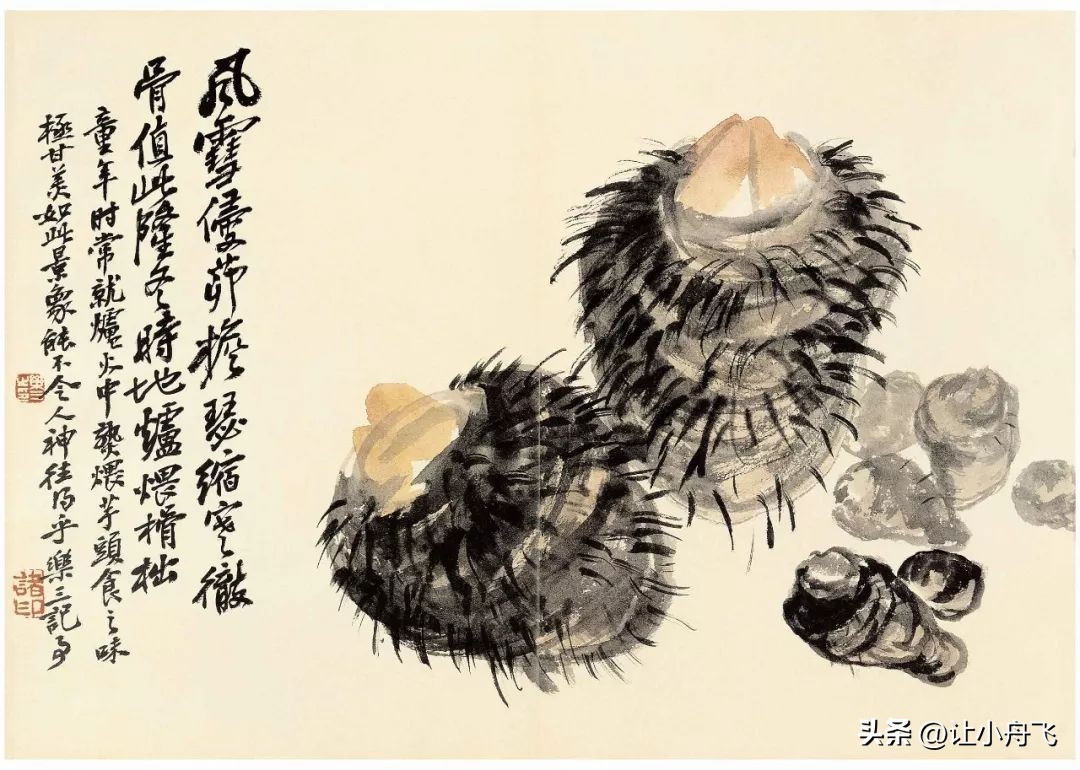 風雪侵茆檐瑟縮寒徹
骨值此隆冬時地爐煨榾柮
童年时常就爐火中熟煨芋頭食之味
極甘美如此景象能不令人神往乎樂三記
諸印
头条 @让小舟飞